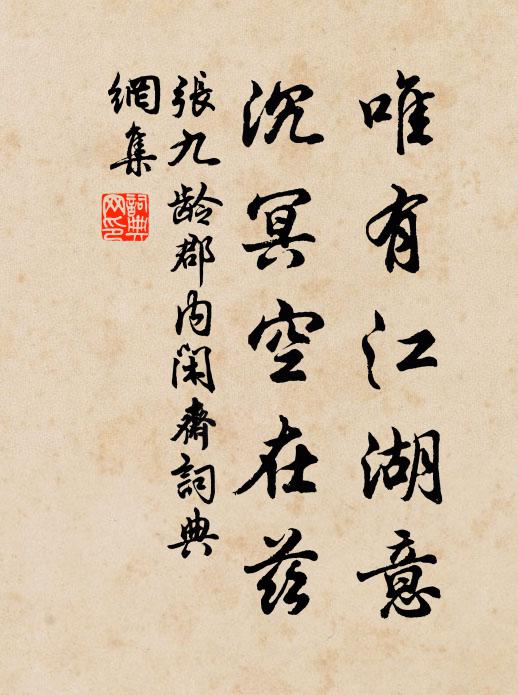 唯有江湖意
沉冥空在兹
張九齡郡内閑齋詞典
網集
詞典
网印